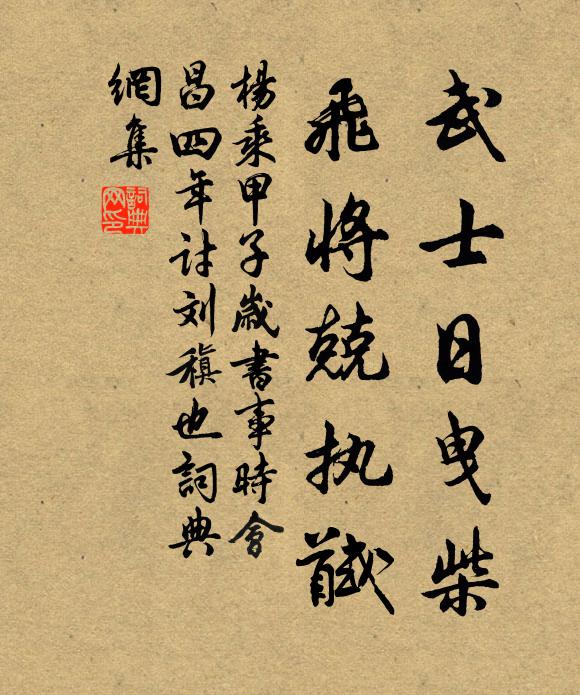 武士日曳柴
飛將兢执馘
楊乘甲子歲書事時會
昌四年討刘稹也詞典
網集
詞典
网印